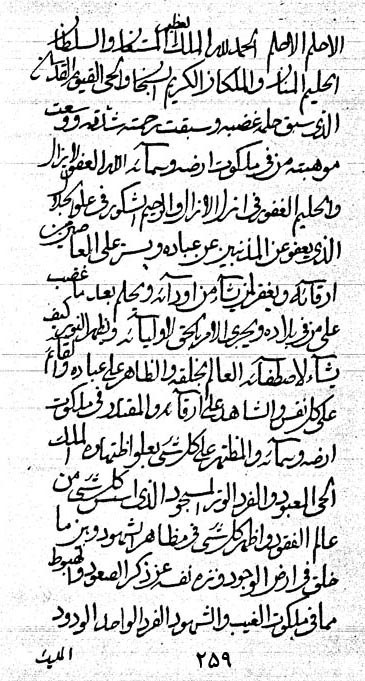 الاحلم الاحلم الحمد لله الملك العظيم المستعان والسلطان
الحليم المنان والملكان الكريم السبحان والحي القيوم القدمان
الذي سبق حلمه غضبه وسبقت رحمته شاقه ووسعت
موهبته من في ملكوت ارضه وسمائه الله الغفور لا يزال
والحليم الغفور في ازل الازال والرحيم الشكور في علو الجلال
الذي يعفو عن المذنبين عن عباده ويستر على العاصين
ارقائه ويغفر لمن يشاء من اودائه ويحلم بعد ما غضب
على من في بلاده ويجري الامر بالحق لاوليائه ويظهر النور كيف
يشاء لاصطفائه العالم بخلقه والظاهر على عباده والقائم
على كل نفس والشاهد على ارقائه والمقتدر في ملكوت
ارضه وسمائه والمظهر على كل شيء بعلو اظهاره الملك
الحي المعبود والفرد الوتر المسجود الذي اسس كل شيء من
عالم الفقود واظهر كل شيء في مظاهر الشهود وبين ما
خلق في ارض الوجود ونزه نفسه عن ذكر الصعود والهبوط
مما في ملكوت الغيب والشهود الفرد الواحد الودود
٢٥٩
المليك